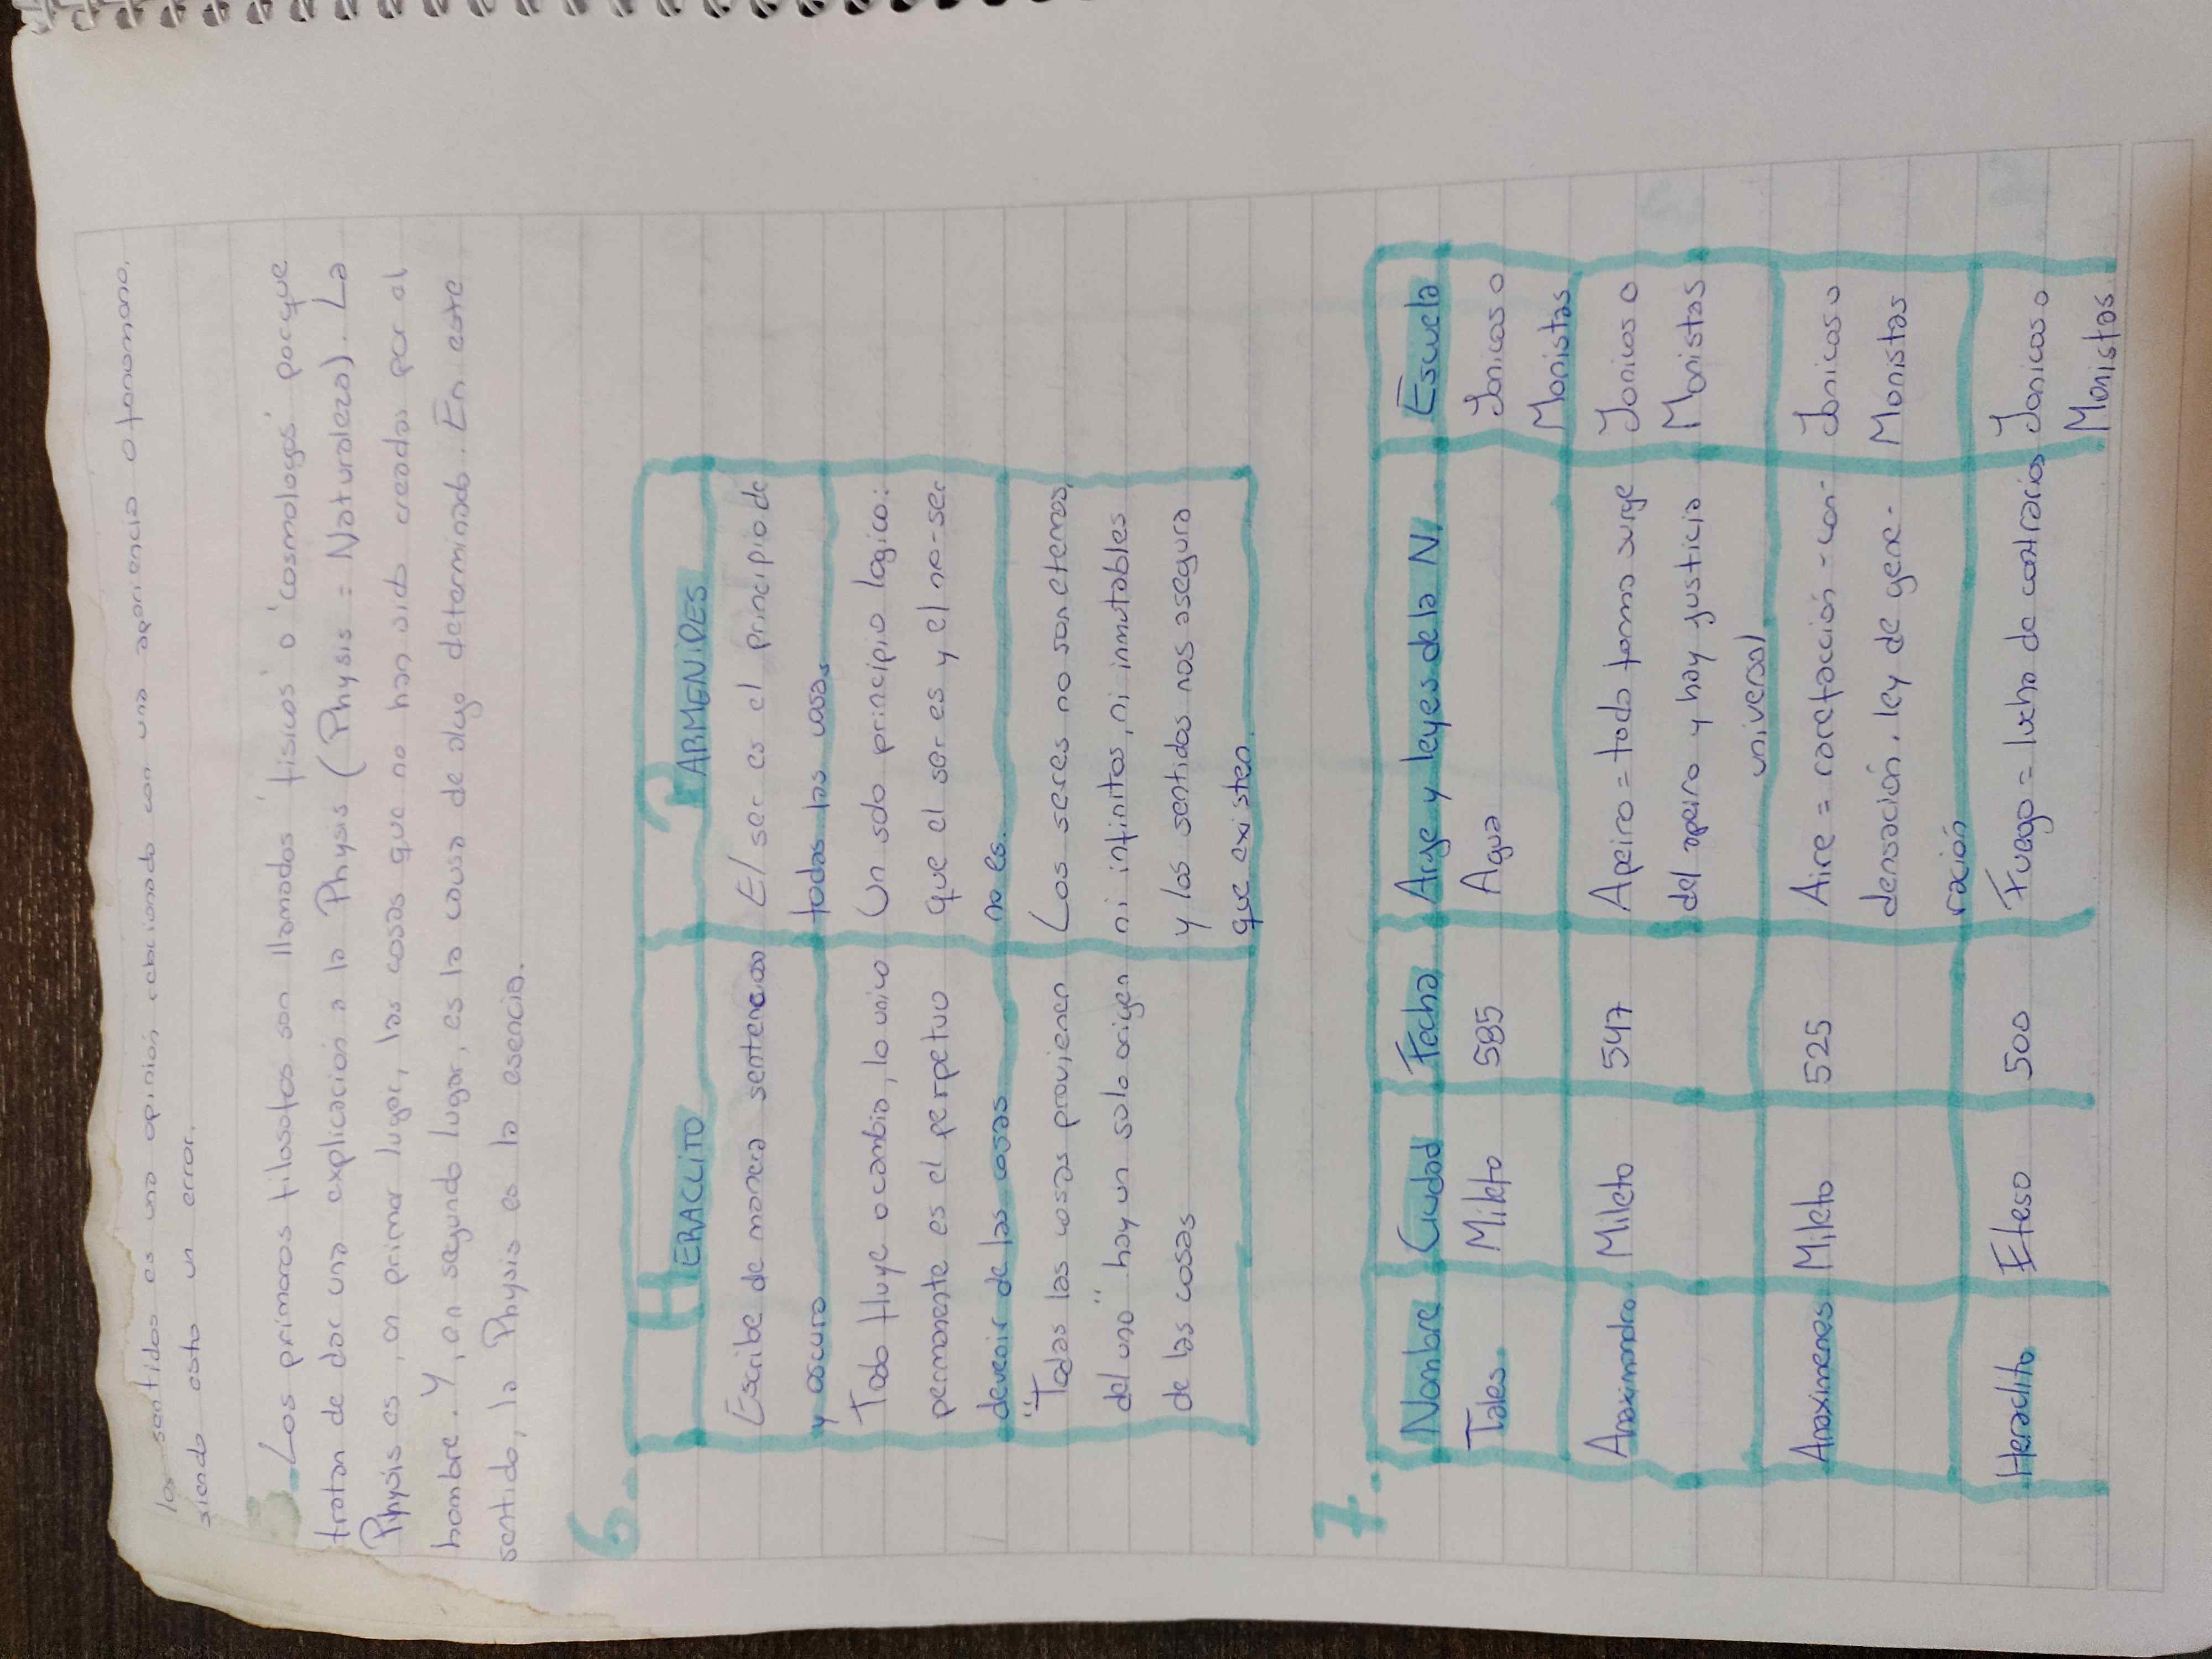 los sentidos es una opinión relacionada con una apariencia o fenomeno,
siendo esto un error.
5. Los primeros filosofos son llamados 'fisicos' o 'cosmologos' porque
tratan de dar una explicación a la Physis (Physis = Naturaleza). La
Physis es, en primer lugar, las cosas que no han sido creadas por el
hombre. Y, en segundo lugar, es la causa de algo determinado. En este
sentido, la Physis es la esencia.
6.
HERACLITO PARMENIDES
Escribe de manera sentenciosa El ser es el principio de
y oscura todas las cosas
Todo fluye o cambia, lo unico Un solo principio logico:
permanente es el perpetuo que el ser es y el no-ser
devenir de las cosas no es.
"Todas las cosas provienen Los seres no son eternos,
del uno" hay un solo origen ni infinitos, ni inmutables
de las cosas y los sentidos nos asegura
que existen.
7.
Nombre Ciudad Fecha Arge y leyes de la N. Escuela
Tales Mileto 585 Agua Jonicos o
Monistas
Anaximandro Mileto 547 Apeiro = todo tomo surge Jonicos o
del apeiro y hay justicia Monistas
universal
Anaximenes Mileto 525 Aire = rarefacción - con- Jonicos o
densación. ley de gene- Monistas
ración
Heraclito Efeso 500 Fuego = lucha de contrarios Jonicos o
Monistas